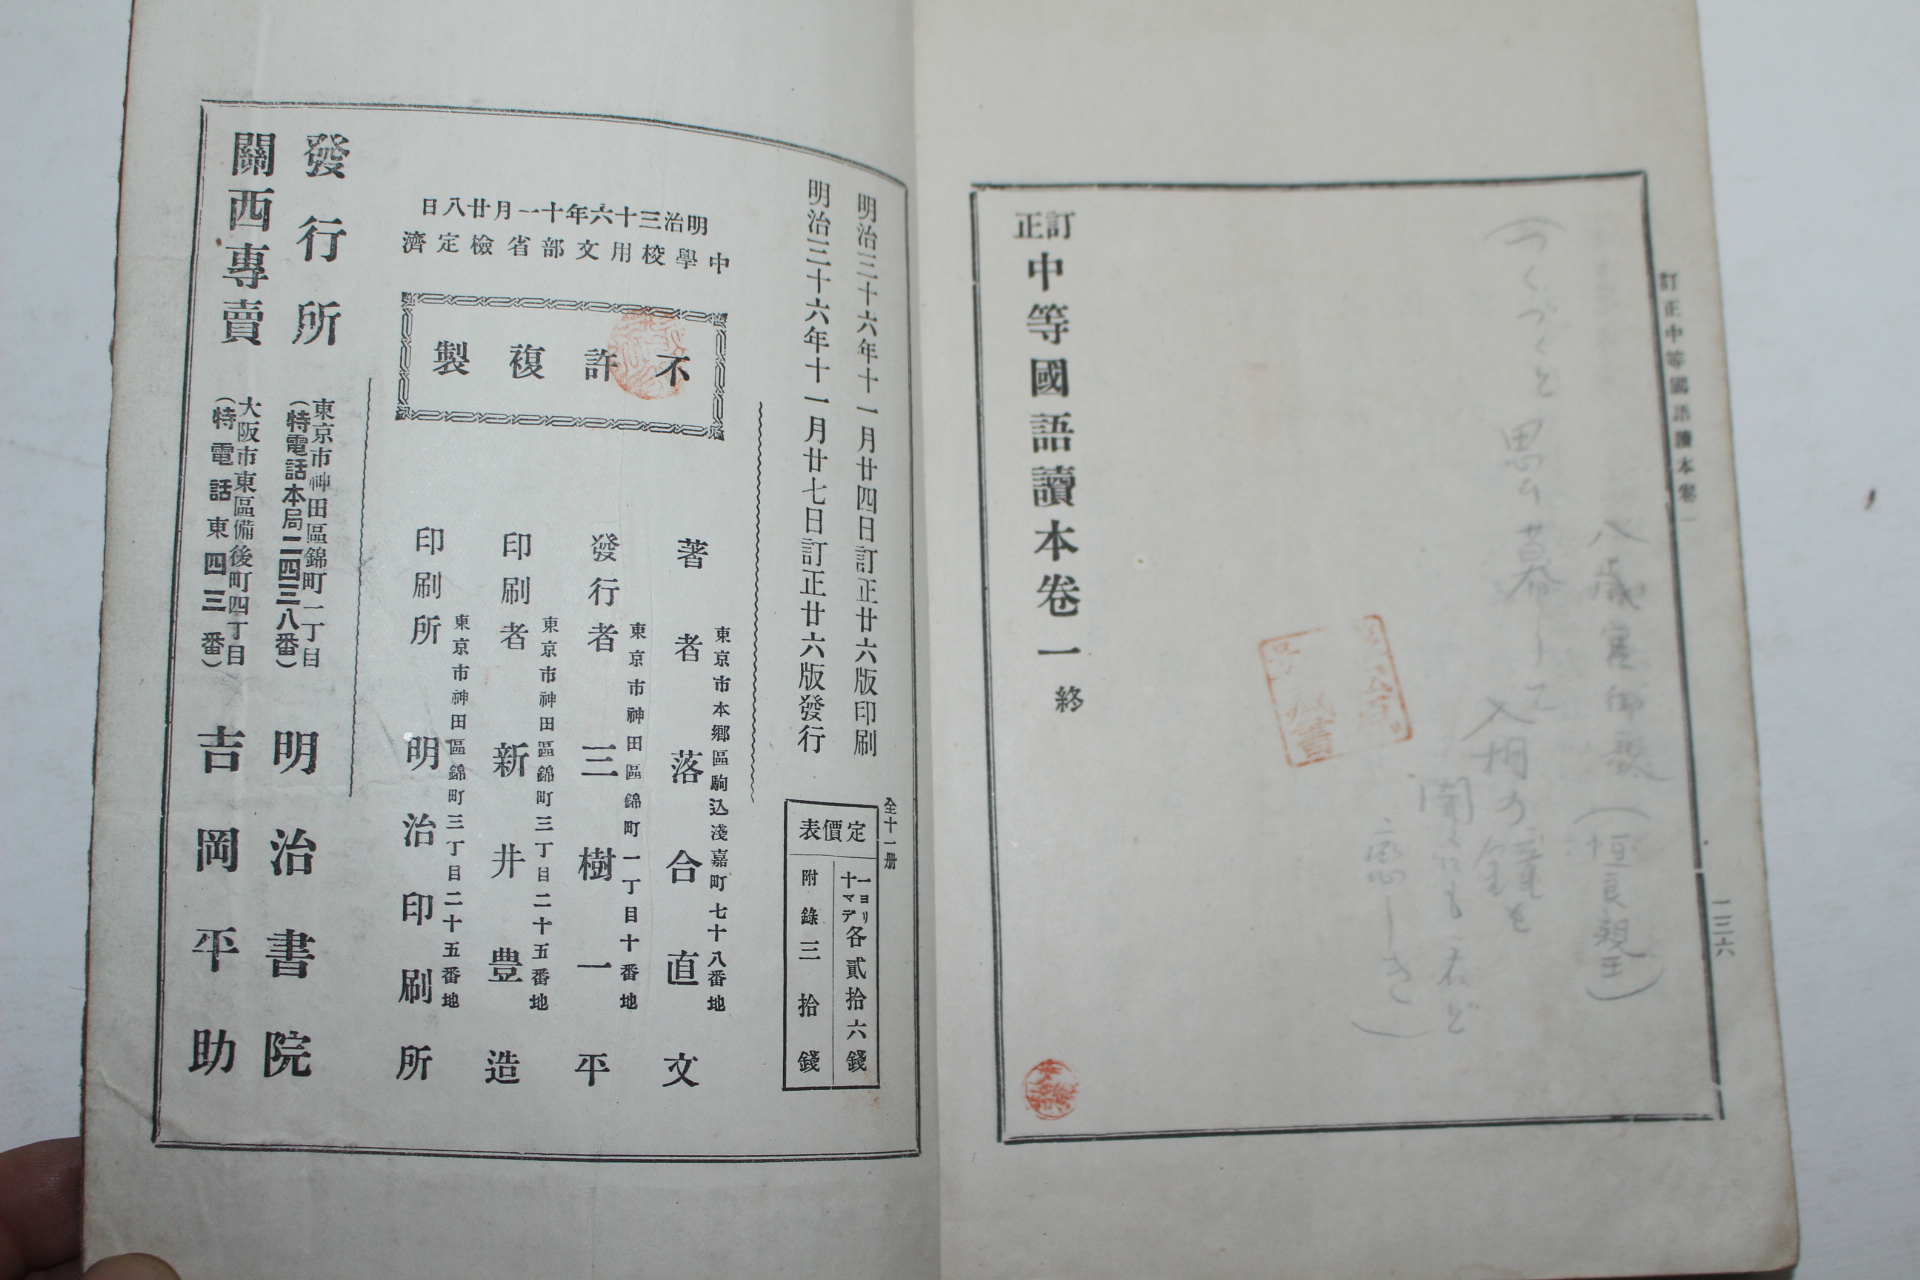 訂正中等國語讀本卷一
一三六
八歳宮御製（恒良親王）
（つくづくと思ひ暮して
入相の鐘を
聞くにも君ぞ
恋しき）
訂正中等國語讀本卷一 終
明治三十六年十一月廿四日訂正廿六版印刷
明治三十六年十一月廿七日訂正廿六版發行
全十一册
定價表
一ヨリ十マデ各貳拾六錢
附錄三拾錢
明治三十六年十一月廿八日
中學校用文部省檢定濟
不許複製
著者 東京市本鄕區駒込淺嘉町七十八番地 落合直文
發行者 東京市神田區錦町一丁目十番地 三樹一平
印刷者 東京市神田區錦町三丁目二十五番地 新井豊造
印刷所 東京市神田區錦町三丁目二十五番地 明治印刷所
發行所 東京市神田區錦町一丁目（特電話本局二四三八番） 明治書院
關西專賣 大阪市東區備後町四丁目（特電話東四三番） 吉岡平助